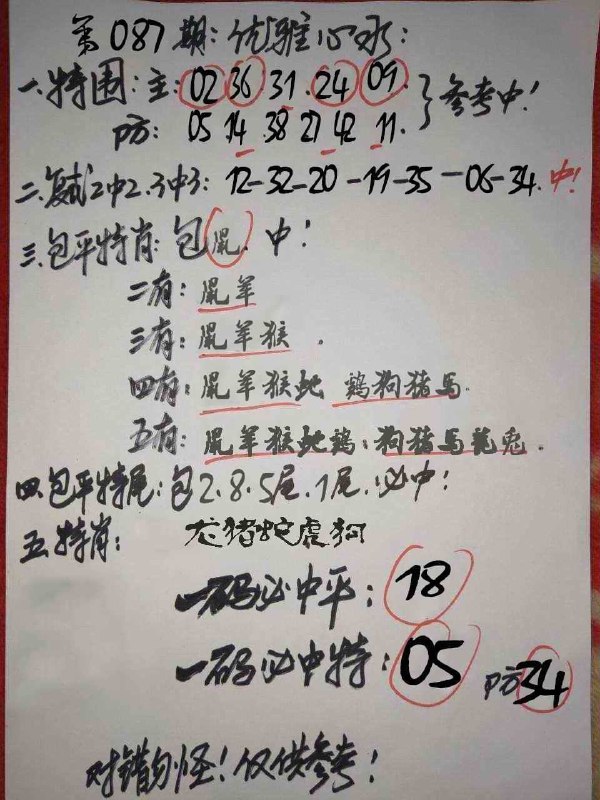 第087期:优雅心水:
一.特围:主:02 36.31.24 09
参考中!
P方: 05 14.38 21 42 11.
二.复试2中2.3中3: 12-32-20-19-35-06-34.中!
三.包平特肖:包鼠.中!
二有:鼠羊
三有:鼠羊猴.
四有:鼠羊猴蛇 鸡狗猪马.
五有:鼠羊猴蛇鸡:狗猪马龍兔.
四.包平特尾:包2.8.5尾.1尾.必中!
五.特肖: 龙猪蛇虎狗
一码必中平:18
一码必中特:05 P方34
对错勿怪!仅供参考!